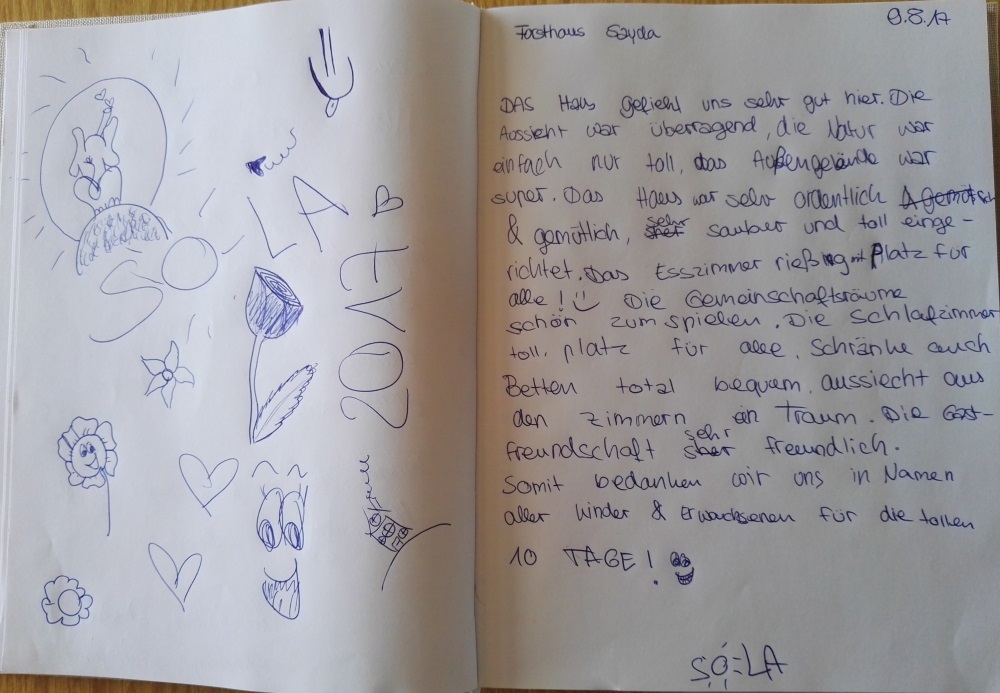 SO-LA
2017
B
Forsthaus Sayda
9.8.17
DAS Haus gefiehl uns sehr gut hier. Die
Aussicht war überragend, die Natur war
einfach nur toll, das Außengelände war
super. Das Haus war sehr ordentlich
& gemütlich, sehr sauber und toll einge-
richtet. Das Esszimmer rießig mit Platz für
alle! Die Gemeinschaftsräume
schön zum spielen. Die Schlafzimmer
toll, platz für alle, Schränke auch
Betten total bequem. aussiecht aus
den zimmern ein Traum. Die Gast-
freundschaft sehr freundlich.
Somit bedanken wir uns in Namen
aller kinder & Erwachsenen für die tollen
10 TAGE!
SO-LA